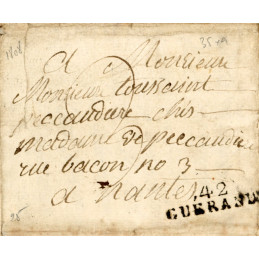 1808
35 -
a Monsieur
Monsieur toussaint
peccaudiere chés
madame de peccaudie
rue bacon no 3
a nantes
25
42
GUERANDE